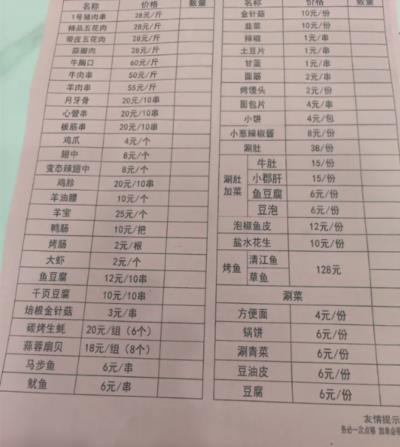 名称 价格 数量
1号猪肉串 28元/斤
精品五花肉 28元/斤
带皮五花肉 28元/斤
蒜瓣肉 28元/斤
牛胸口 60元/斤
牛肉串 50元/斤
羊肉串 55元/斤
月牙骨 20元/10串
心管串 20元/10串
板筋串 20元/10串
鸡爪 4元/个
翅中 8元/个
变态辣翅中 8元/个
鸡胗 20元/10串
羊油腰 10元/个
羊宝 25元/个
鸭肠 10元/把
烤肠 2元/根
大虾 2元/个
鱼豆腐 12元/10串
千页豆腐 10元/10串
培根金针菇 3元/串
碳烤生蚝 20元/组（6个）
蒜蓉扇贝 18元/组（8个）
马步鱼 6元/串
鱿鱼 6元/串
名称 价格 数量
金针菇 10元/份
韭菜 10元/份
辣椒 1元/串
土豆片 1元/串
甘蓝 1元/串
面筋 2元/串
烤馒头 2元/份
面包片 4元/串
小饼 4元/包
小葱辣椒酱 8元/份
涮肚 38/份
涮肚加菜
牛肚 15/份
小郡肝 15/份
鱼豆腐 6元/份
豆泡 6元/份
泡椒鱼皮 12元/份
盐水花生 10元/份
烤鱼 清江鱼 128元
草鱼
涮菜
方便面 4元/份
锅饼 6元/份
涮青菜 6元/份
豆油皮 6元/份
豆腐 6元/份
友情提示
务必一次点够 加单会